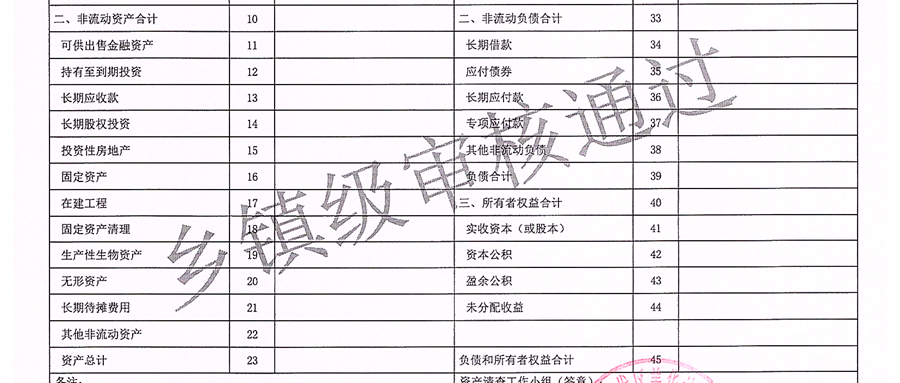 二、非流动资产合计 10 二、非流动负债合计 33
可供出售金融资产 11 长期借款 34
持有至到期投资 12 应付债券 35
长期应收款 13 长期应付款 36
长期股权投资 14 专项应付款 37
投资性房地产 15 其他非流动负债 38
固定资产 16 负债合计 39
在建工程 17 三、所有者权益合计 40
固定资产清理 18 实收资本（或股本） 41
生产性生物资产 19 资本公积 42
无形资产 20 盈余公积 43
长期待摊费用 21 未分配收益 44
其他非流动资产 22
资产总计 23 负债和所有者权益合计 45
备注： 资产清查工作小组（签章）
乡镇级审核通过